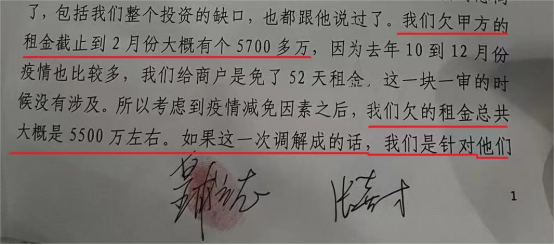 了，包括我们整个投资的缺口，也都跟他说过了。我们欠甲方的
租金截止到2月份大概有个5700多万，因为去年10到12月份
疫情也比较多，我们给商户是免了52天租金，这一块一审的时
候没有涉及。所以考虑到疫情减免因素之后，我们欠的租金总共
大概是5500万左右。如果这一次调解成的话，我们是针对他们
1